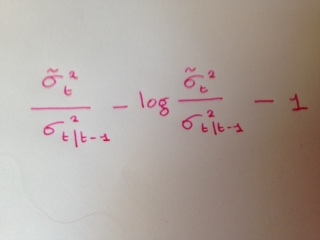 \frac{\tilde{\sigma}_t^2}{\sigma_{t|t-1}^2} - \log \frac{\tilde{\sigma}_t^2}{\sigma_{t|t-1}^2} - 1